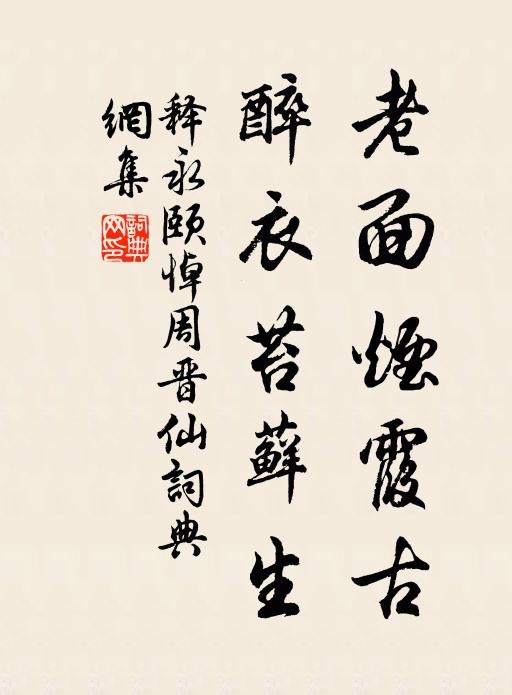 老面煙霞古
醉衣苔蘚生
释永颐悼周晋仙詞典
網集
詞典
网印